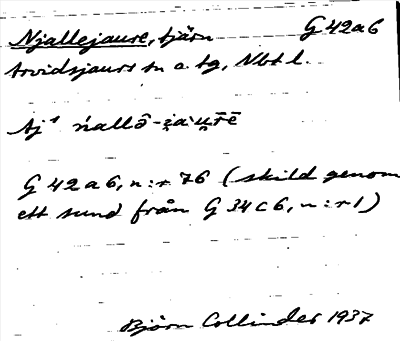 Njallejaure, tjärn G 42a6
Arvidsjaurs sn o. tg, Nbt l.
Aj¹ ńallō-i̯au̯rē
G 42a6, n:r 76 (skild genom
ett sund från G 34c6, n:r 1)
Björn Collinder 1937